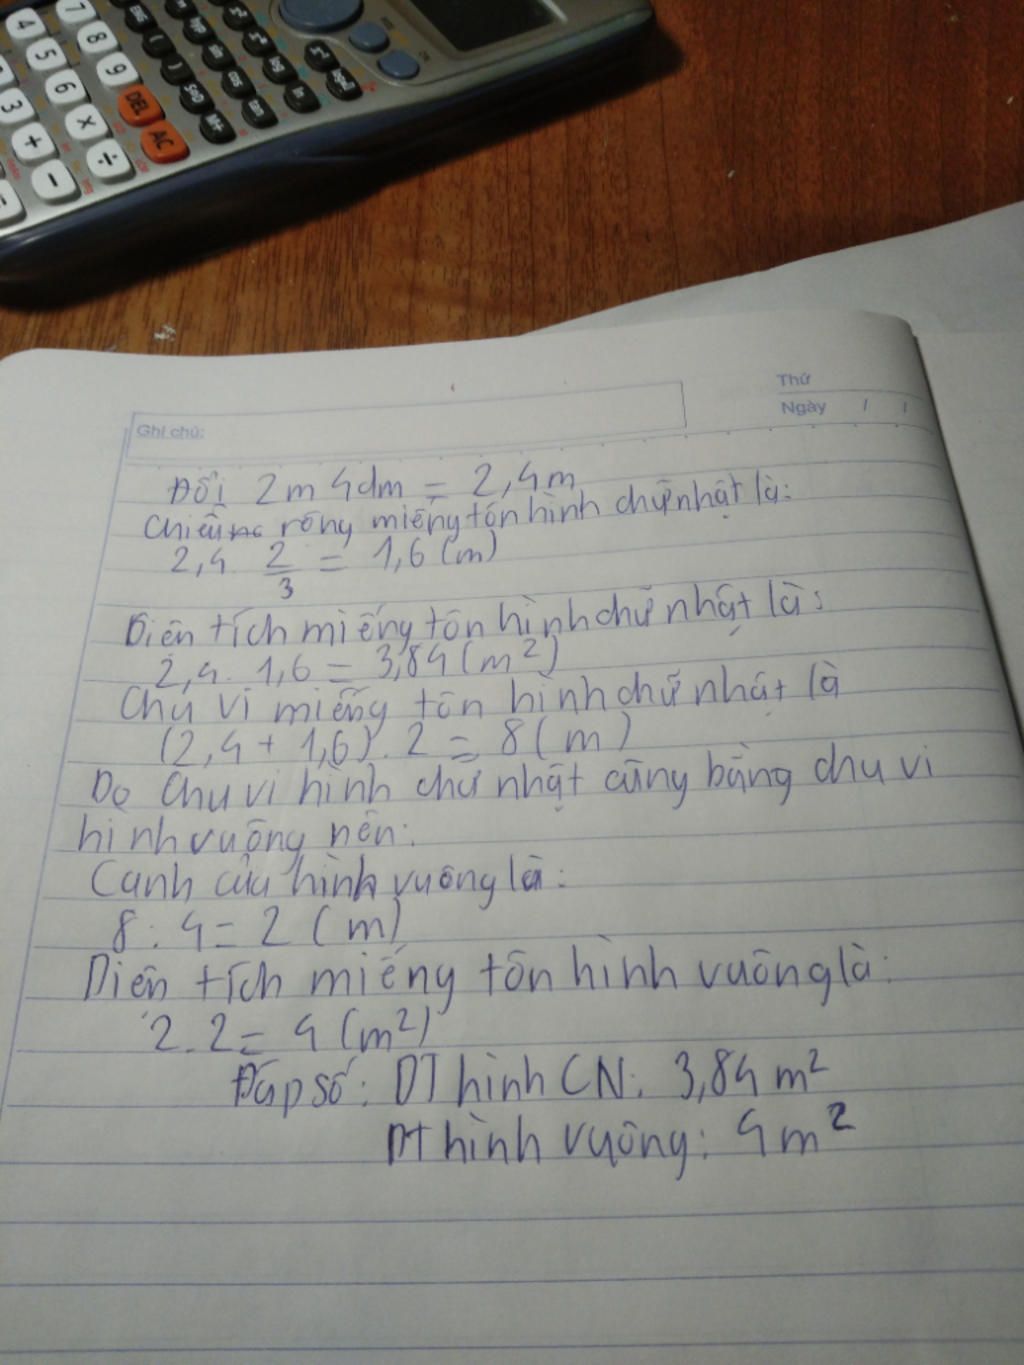 4 7
5 8
6 9 DEL
3 × AC
+ ÷
-
ENG ( ) S⇔D M+
hyp sin cos tan
log ln
Thứ
Ngày / /
Ghi chú:
Đổi 2m 4dm = 2,4m
Chiều rộng miếng tôn hình chữ nhật là:
2,4. 2/3 = 1,6 (m)
Diện tích miếng tôn hình chữ nhật là:
2,4. 1,6 = 3,84 (m²)
Chu vi miếng tôn hình chữ nhật là
(2,4 + 1,6). 2 = 8 (m)
Do Chu vi hình chữ nhật cũng bằng chu vi
hình vuông nên:
Cạnh của hình vuông là:
8 : 4 = 2 (m)
Diện tích miếng tôn hình vuông là:
2. 2 = 4 (m²)
Đáp số: DT hình CN: 3,84 m²
DT hình vuông: 4 m²